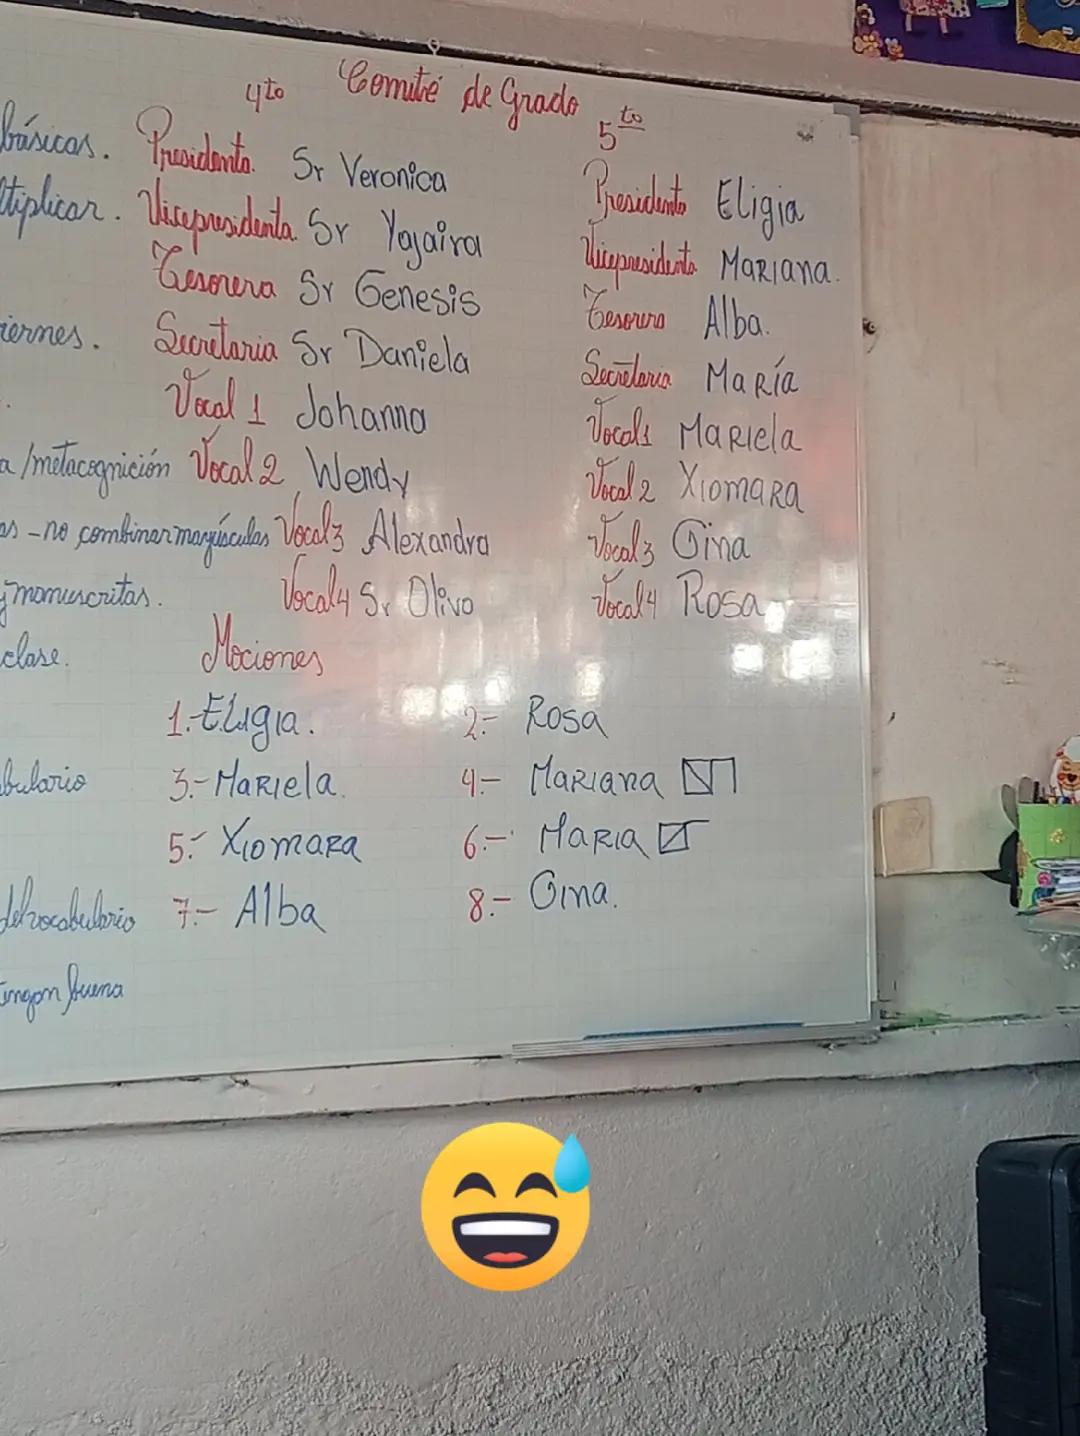 Comité de Grado
4to
5to
básicas.
tiplicar.
iernes.
a/metacognición
as - no combinar mayúsculas
y manuscritas.
clase.
bulario
del vocabulario
tengan buena
Presidenta. Sr Veronica
Vicepresidenta. Sr Yajaira
Tesorera Sr Genesis
Secretaria Sr Daniela
Vocal 1 Johanna
Vocal 2 Wendy
Vocal 3 Alexandra
Vocal 4 Sr Olivo
Presidenta Eligia
Vicepresidenta Mariana.
Tesorera Alba.
Secretaria María
Vocal 1 Mariela
Vocal 2 Xiomara
Vocal 3 Gina
Vocal 4 Rosa
Mociones
1.- Eligia.
2.- Rosa
3.- Mariela.
4.- Mariana
5.- Xiomara
6.- Maria
7.- Alba
8.- Gina.